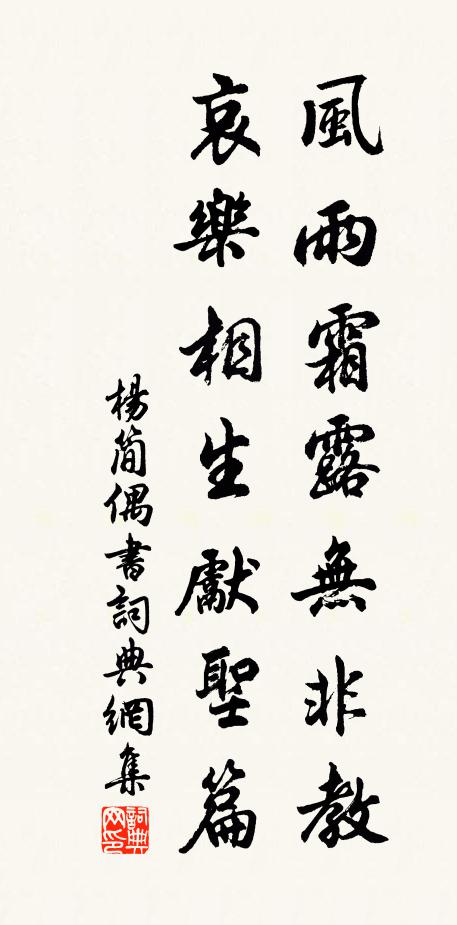 風雨霜露無非教
哀樂相生獻聖篇
楊簡偶書詞典網集
詞典网印